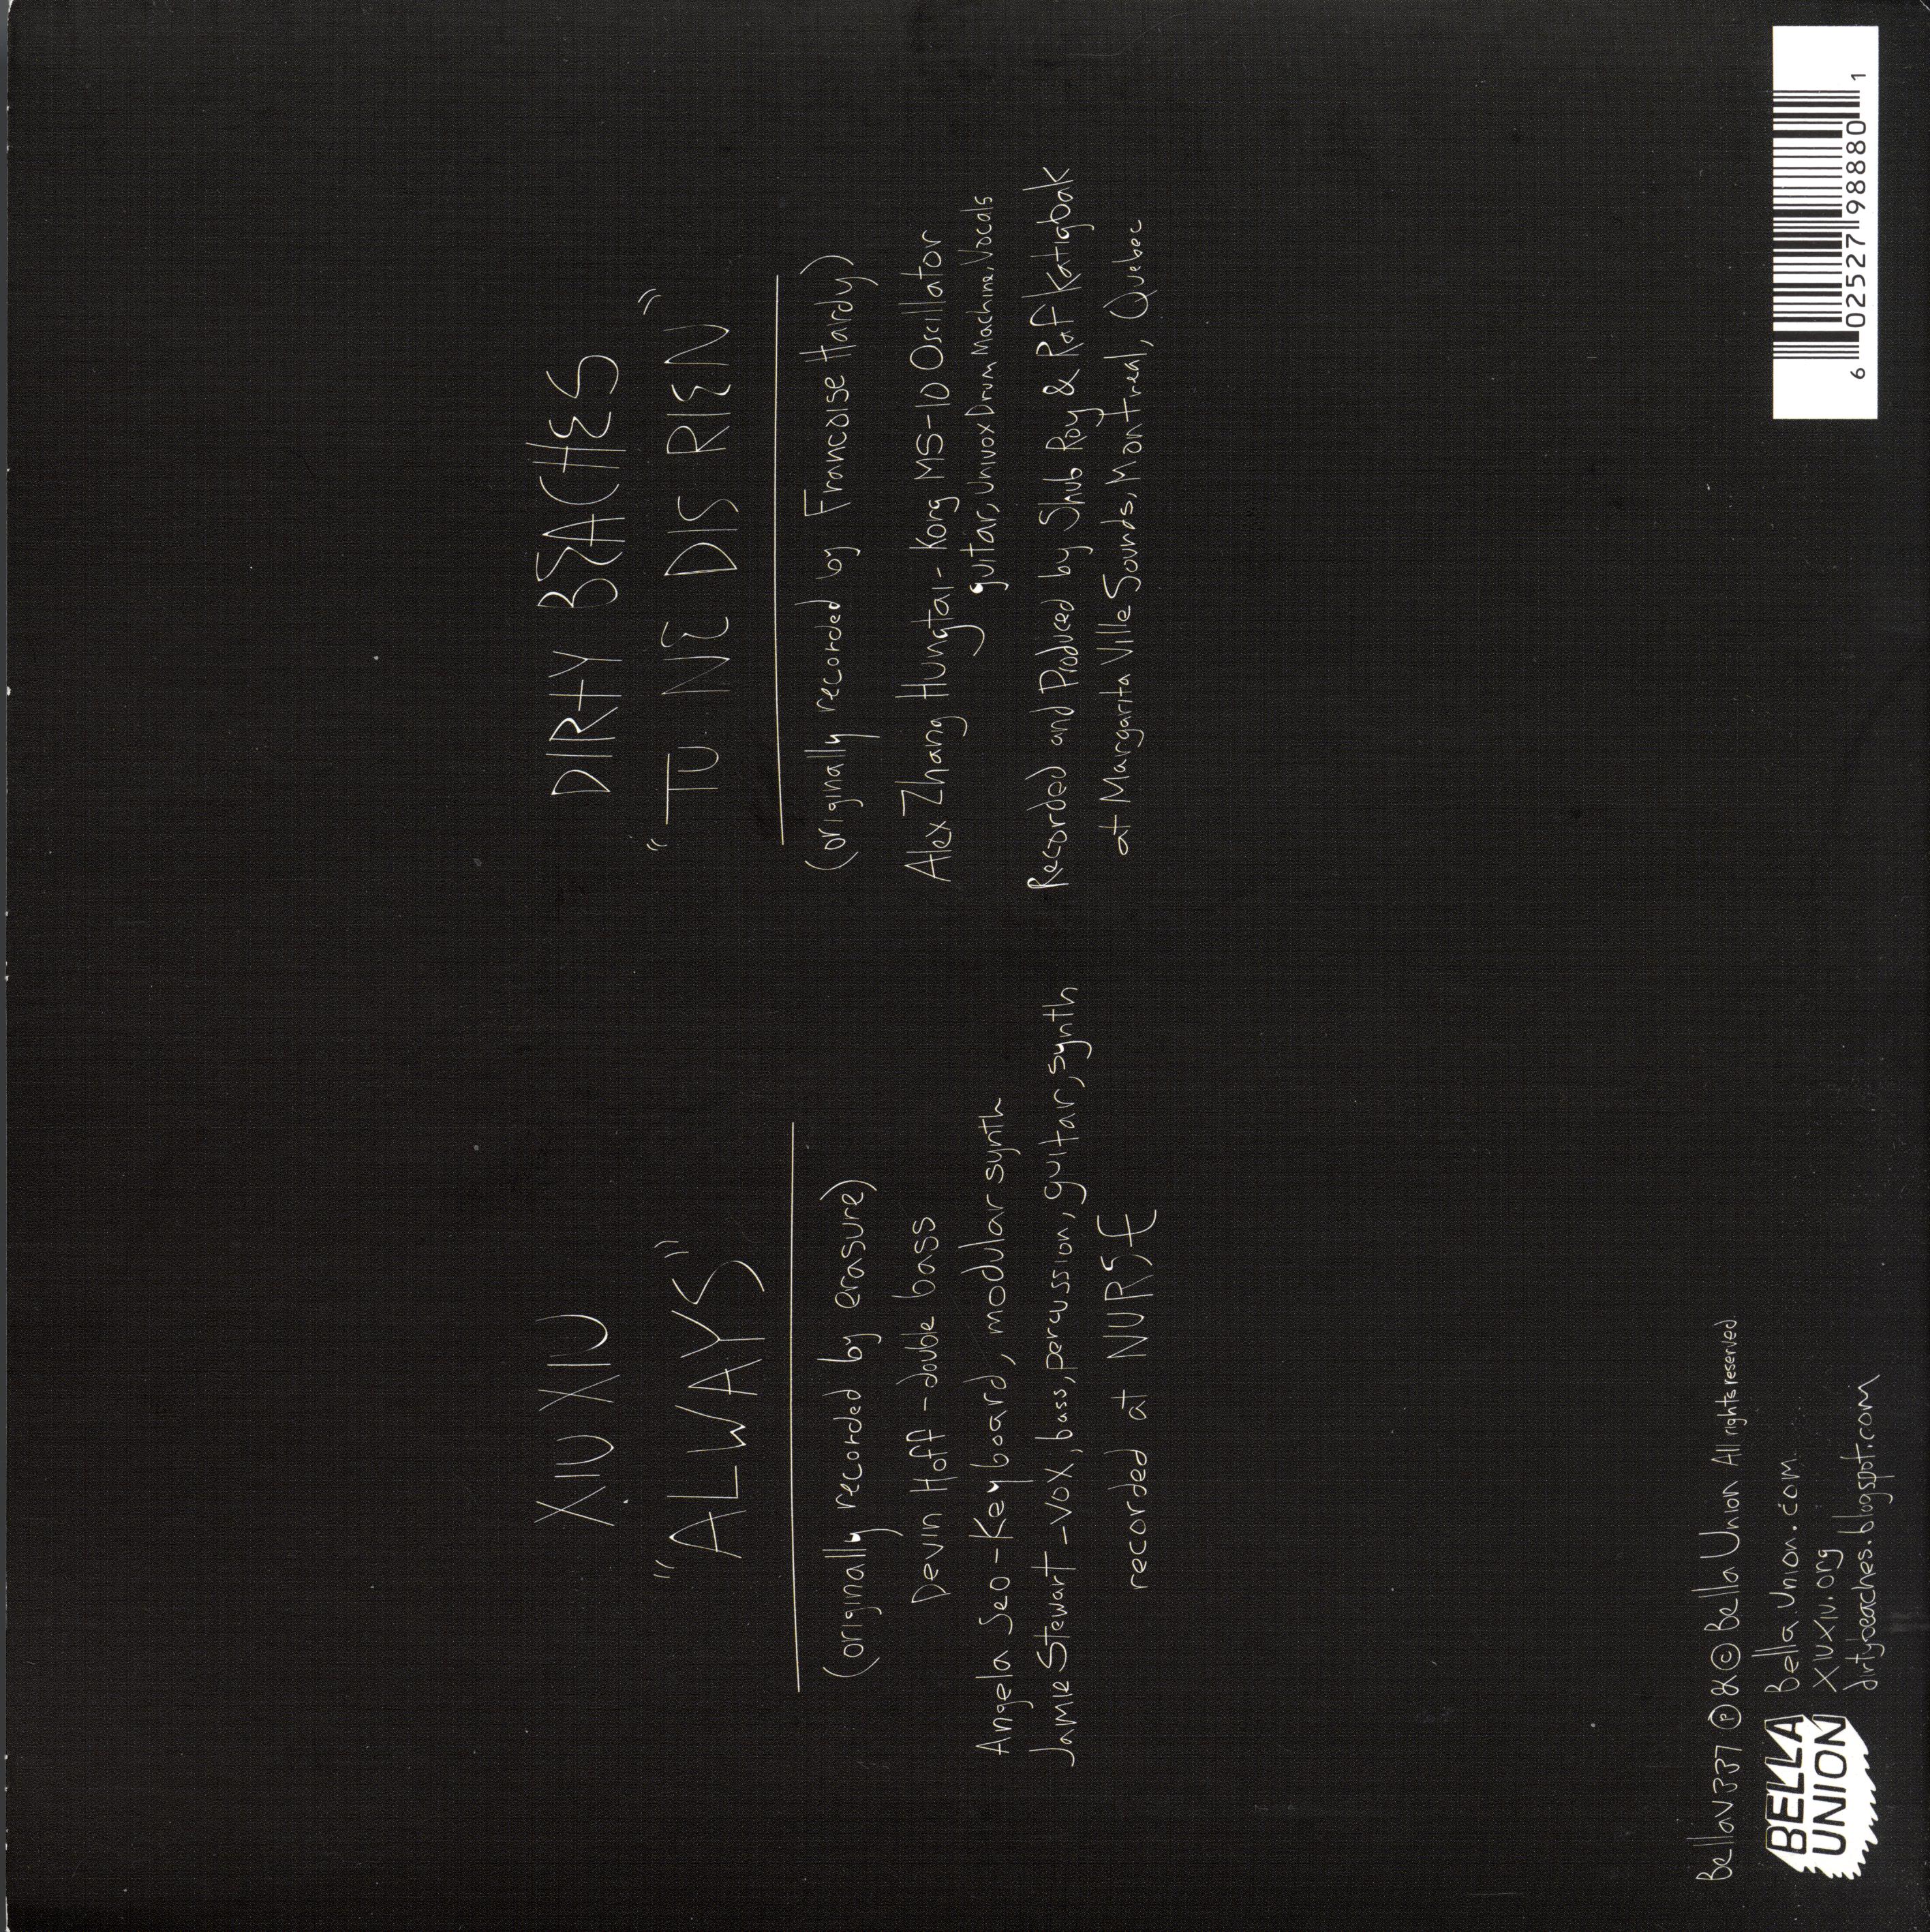 XIU XIU
"ALWAYS"
(originally recorded by erasure)
Devin Hoff - double bass
Angela Seo - Keyboard, modular synth
Jamie Stewart - vox, bass, percussion, guitar, synth
recorded at NURSE
DIRTY BEACHES
"TU NE DIS RIEN"
(originally recorded by Francoise Hardy)
Alex Zhang Hungtai - Korg MS-10 Oscillator
guitar, Univox Drum Machine, Vocals
Recorded and Produced by Shub Roy & Raf Katigbak
at Margarita Ville Sounds, Montreal, Quebec
BellaV337 Ⓟ & © Bella Union All rights reserved
Bella Union.com
XIUXIU.org
dirtybeaches.blogspot.com
BELLA
UNION
6 02527 98880 1